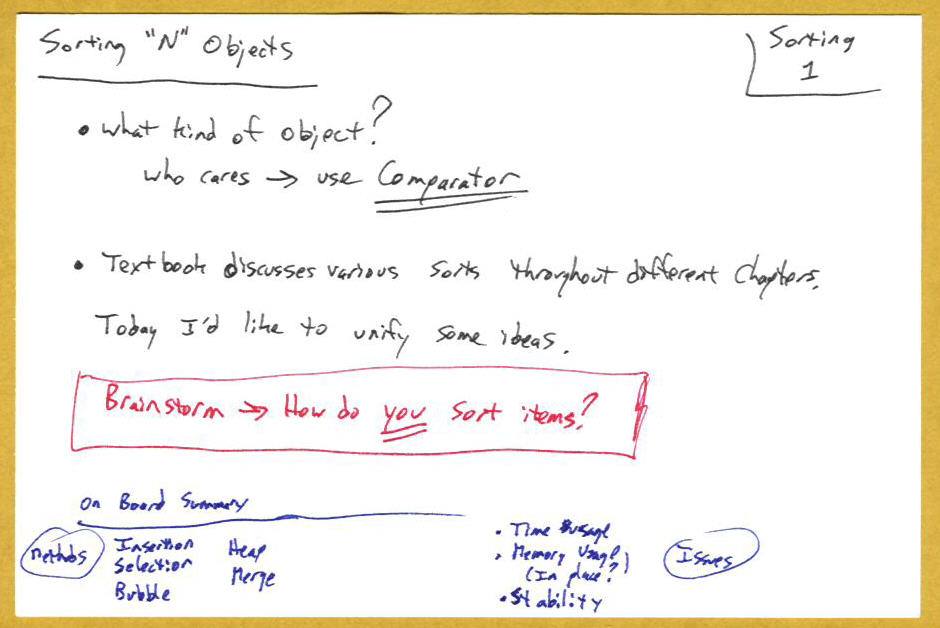 Sorting "N" Objects
Sorting
1
• What kind of object?
who cares → use Comparator
• Textbook discusses various sorts throughout different chapters.
Today I'd like to unify some ideas.
Brainstorm → How do you sort items?
On Board Summary
Methods
Insertion
Selection
Bubble
Heap
Merge
• Time usage
• Memory Usage
(In place?)
• Stability
Issues